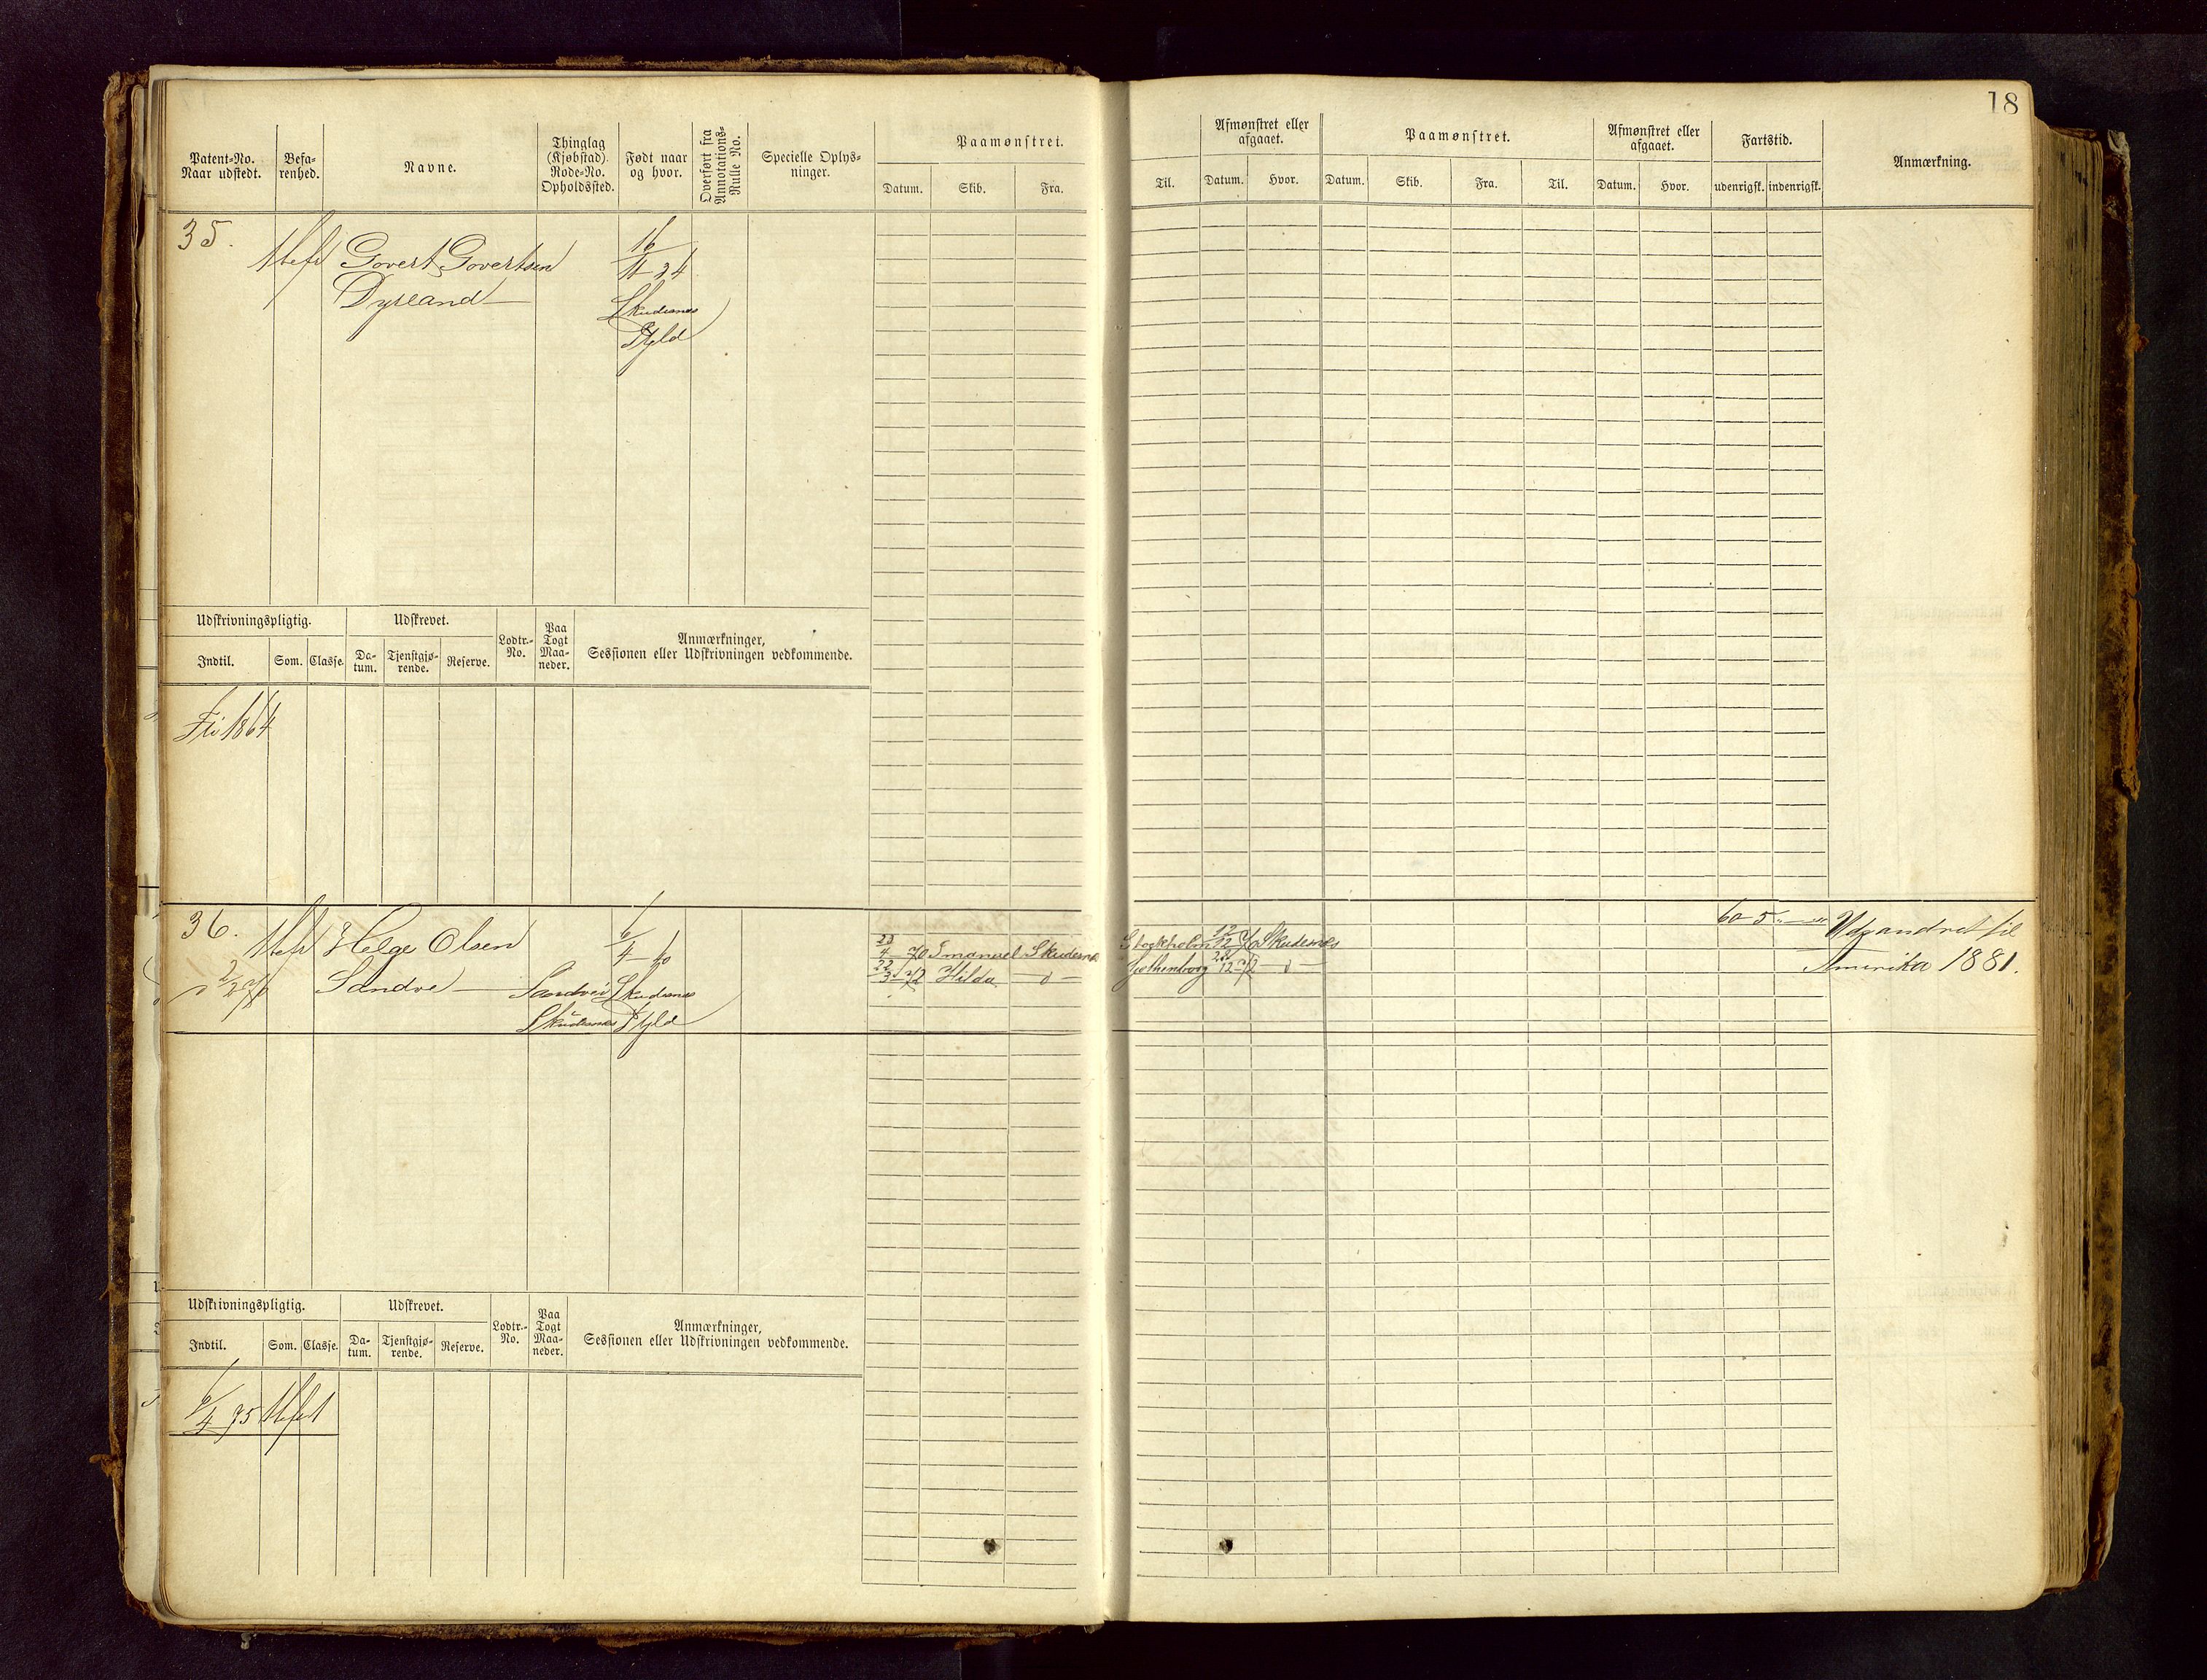 18
Patent-No.
Naar udstedt.
Befa-
renhed.
Navne.
Thinglag
(Kjøbstad).
Rode-No.
Opholdssted.
Født naar
og hvor.
Overført fra
Annotations-
Rulle No.
Specielle Oplys-
ninger.
Paamønstret.
Datum. Skib. Fra.
Til.
Afmønstret eller
afgaaet.
Datum. Hvor.
Paamønstret.
Datum. Skib. Fra. Til.
Afmønstret eller
afgaaet.
Datum. Hvor.
Fartstid.
udenrigsk. indenrigsk.
Anmærkning.
35.
Govert Govertsen
Dyrland
16/11 34
Skudesnes
Udskrivningspligtig.
Indtil. Som. Classe.
Udskrevet.
Da-
tum.
Tjenstgjø-
rende.
Reserve.
Lodtr.-
No.
Paa
Togt
Maa-
neder.
Anmærkninger,
Sessionen eller Udskrivningen vedkommende.
Fri 1864
36.
Helge Olsen
Sandve
Sandve
Skudesnes
6/4 40
Skudesnes
23/4 70 Imanuel Skudesnes
Stockholm 12/12 70 Skudesnes
22/3 72 Hilda — o —
Gothenborg 12 72 — o —
60 – 5
Udvandret til
Amerika 1881.
Udskrivningspligtig.
Indtil. Som. Classe.
Udskrevet.
Da-
tum.
Tjenstgjø-
rende.
Reserve.
Lodtr.-
No.
Paa
Togt
Maa-
neder.
Anmærkninger,
Sessionen eller Udskrivningen vedkommende.
6/4 75